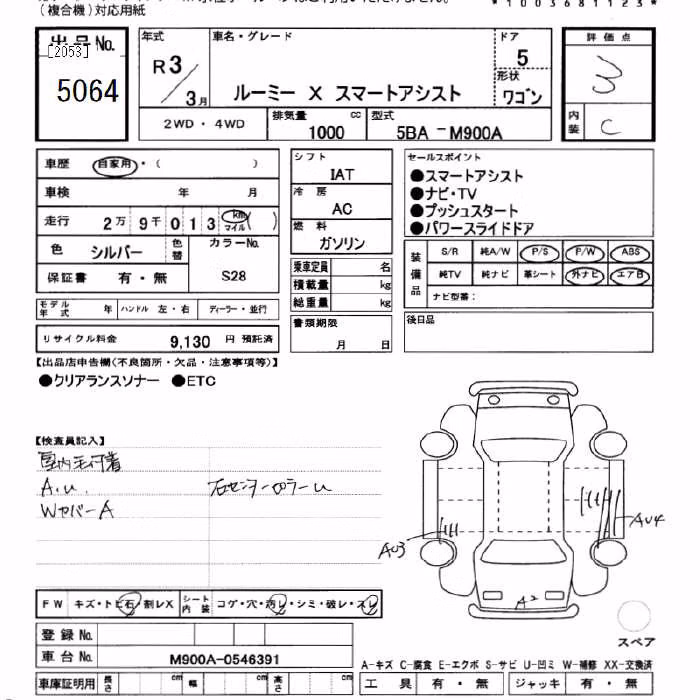 (複合機)対応用紙
*1003681123*
出品No.
[2053]
5064
年式
R3
3月
車名・グレード
ルーミー X スマートアシスト
ドア
5
形状
ワゴン
評価点
3
内装
C
2WD・4WD
排気量
1000
cc
型式
5BA-M900A
車歴
自家用・( )
車検
年 月
走行
2万9千013 km マイル ( )
色
シルバー
色替
カラーNo.
S28
保証書
有・無
モデル年式
年
ハンドル 左・右
ディーラー・並行
リサイクル料金
9,130 円 預託済
シフト
IAT
冷房
AC
燃料
ガソリン
乗車定員 名
積載量 kg
総重量 kg
書類期限
月 日
セールスポイント
●スマートアシスト
●ナビ・TV
●プッシュスタート
●パワースライドドア
装備品
S/R 純A/W P/S P/W ABS
純TV 純ナビ 革シート 外ナビ エアB
ナビ型番:
後日品
【出品店申告欄(不良箇所・欠品・注意事項等)】
●クリアランスソナー ●ETC
【検査員記入】
室内毛付着
A.U.
右センターピラーU
WカバーA
AU3
AU4
A2
FW キズ・トビ石・割レX
シート内装 コゲ・穴・汚レ・シミ・破レ・スレ
登録No.
車台No.
M900A-0546391
車庫証明用
長さ cm
幅 cm
高さ cm
スペア
A-キズ C-腐食 E-エクボ S-サビ U-凹ミ W-補修 XX-交換済
工具 有・無
ジャッキ 有・無